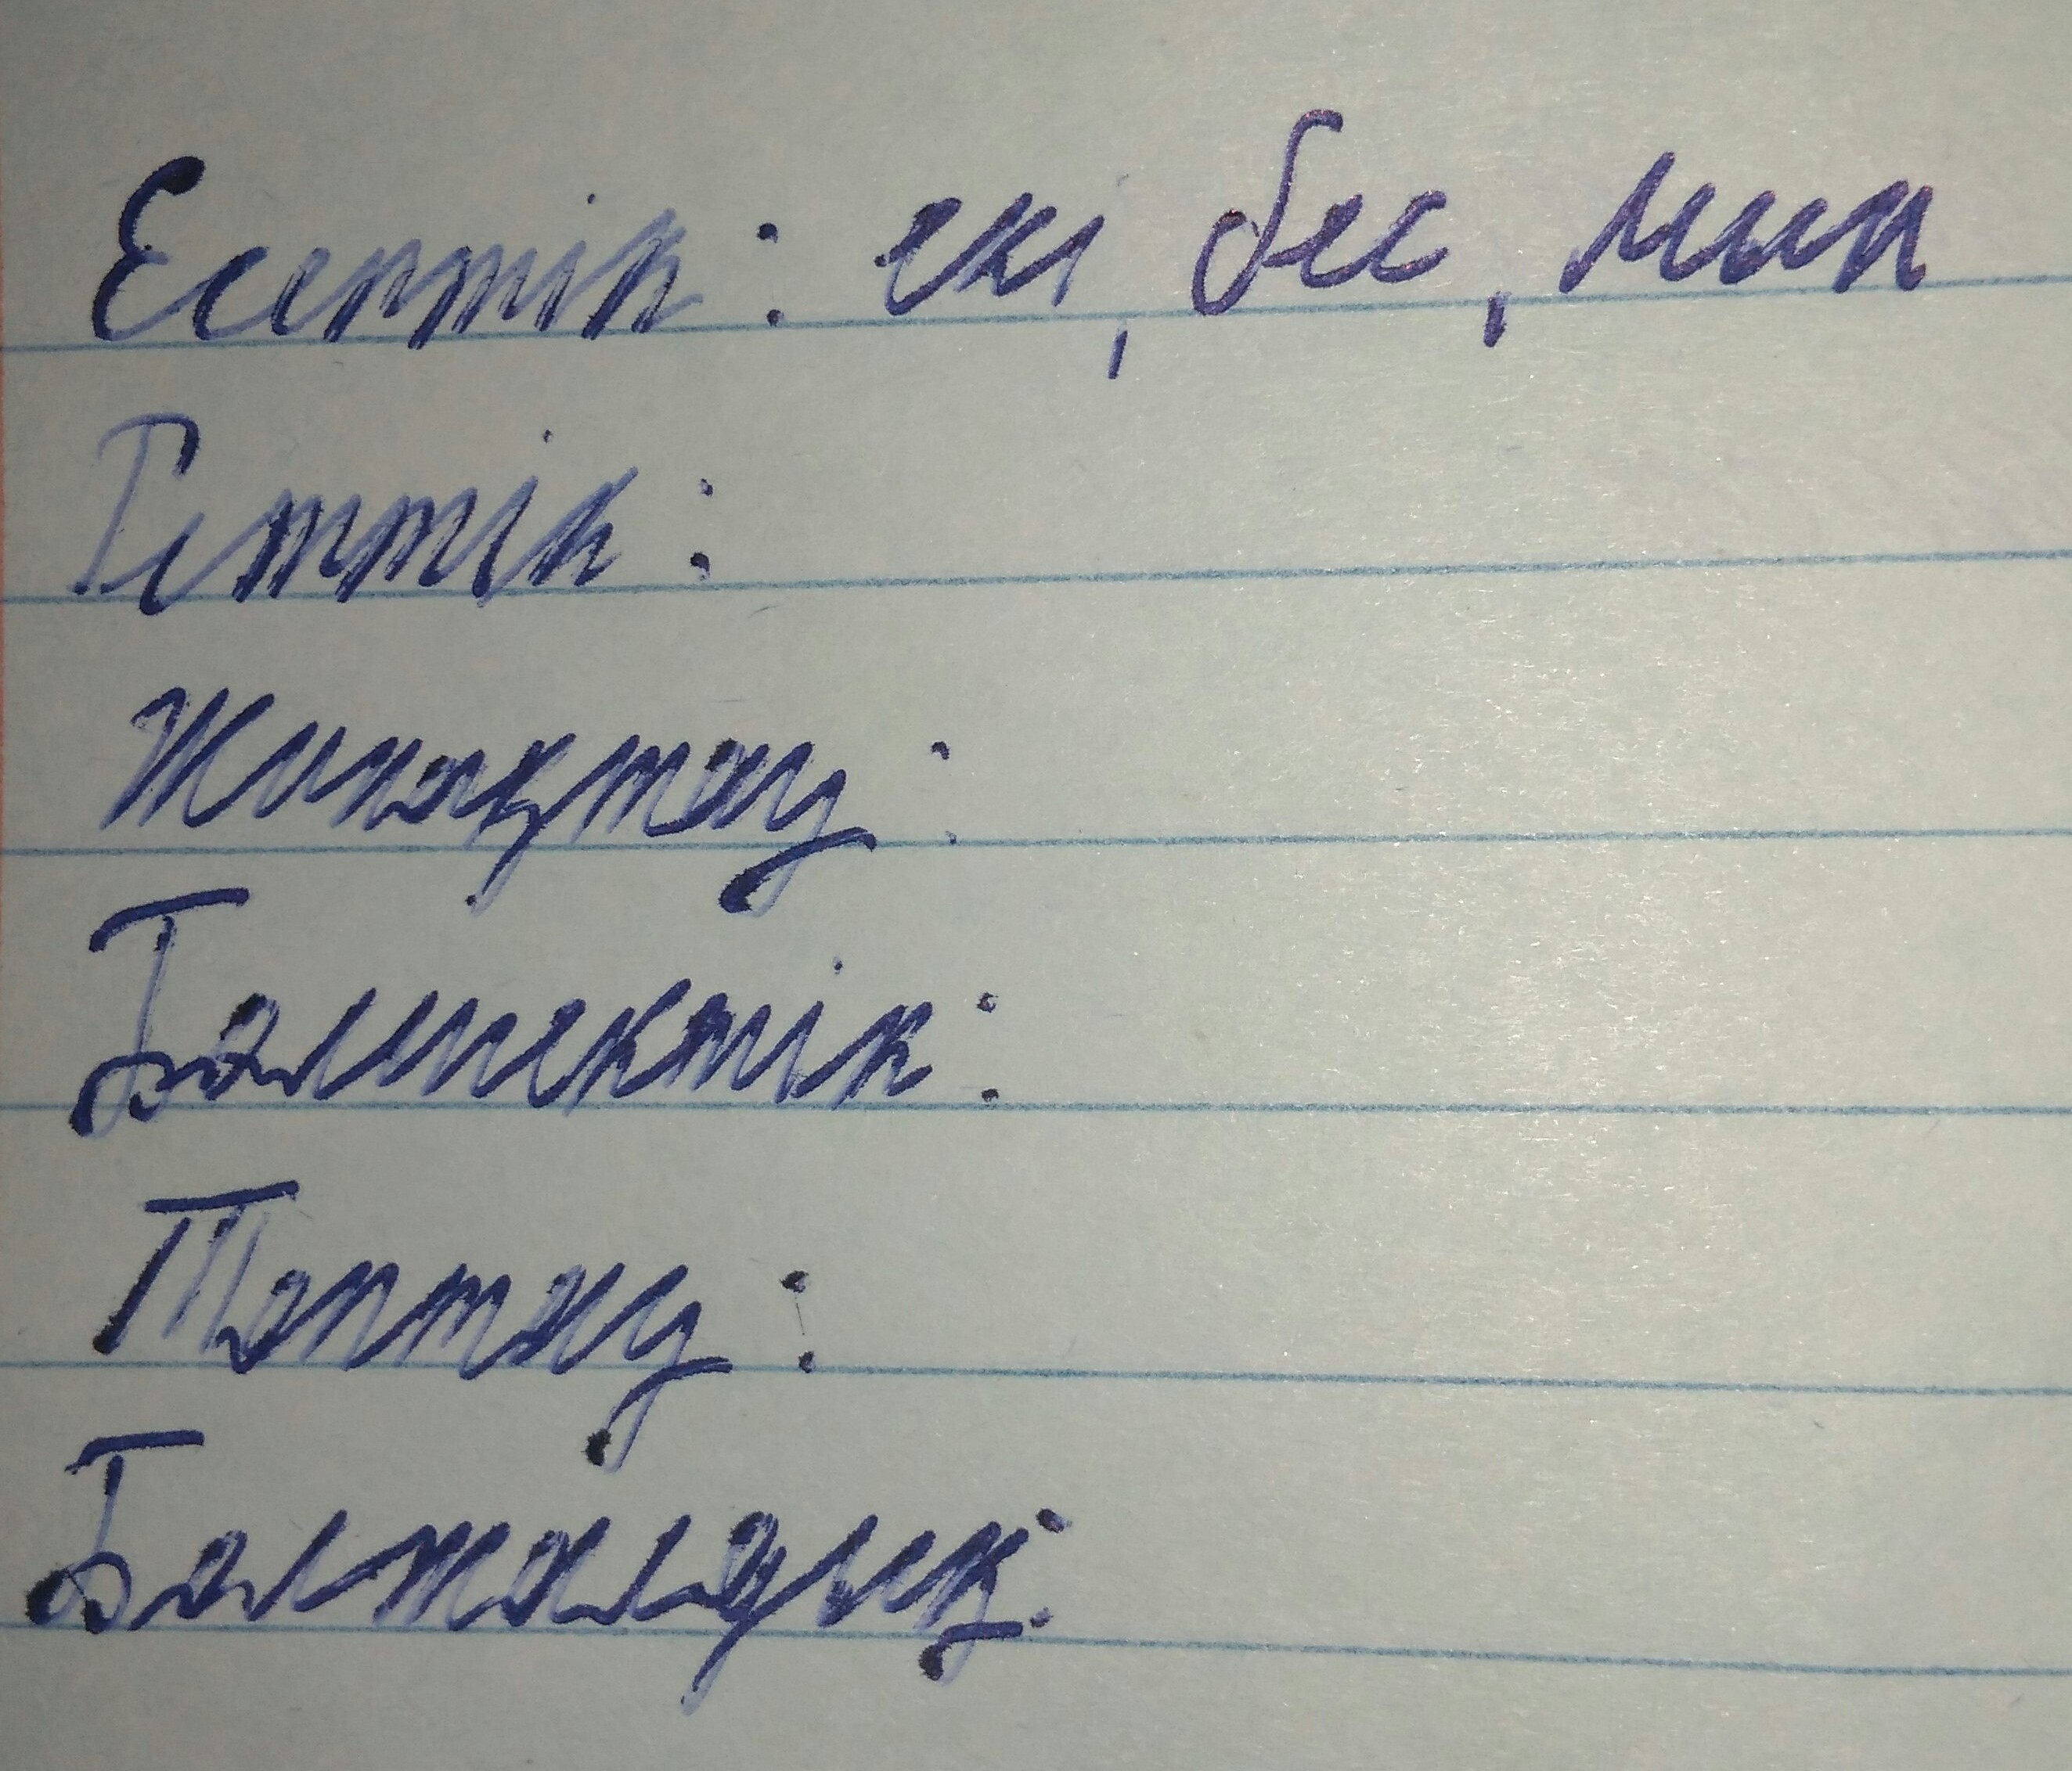 Есептік: екі, бес, мин
Реттік:
Жинақтау:
Бөлшектік:
Топтау:
Болжалдық: